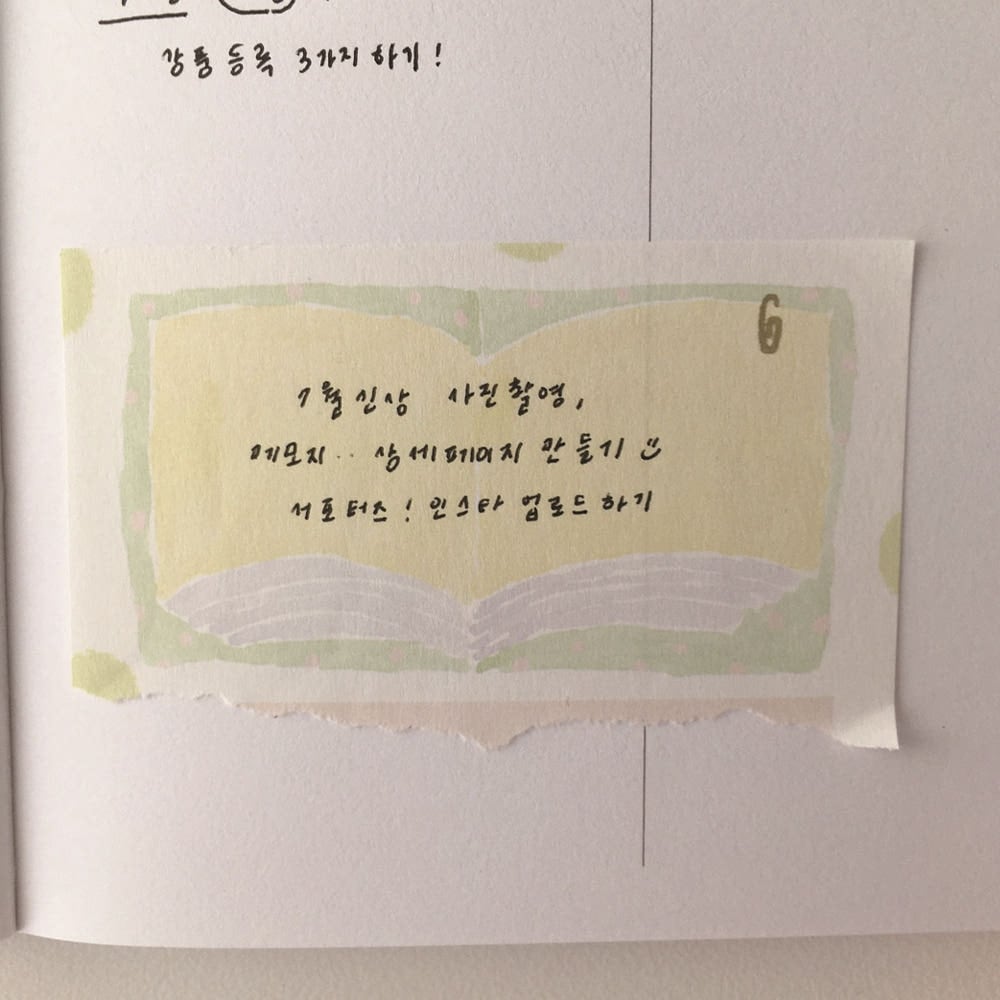 강풍등록 3가지하기!
6
7월신상 사진촬영,
메모지.. 상세페이지 만들기
서포터즈! 인스타 업로드하기